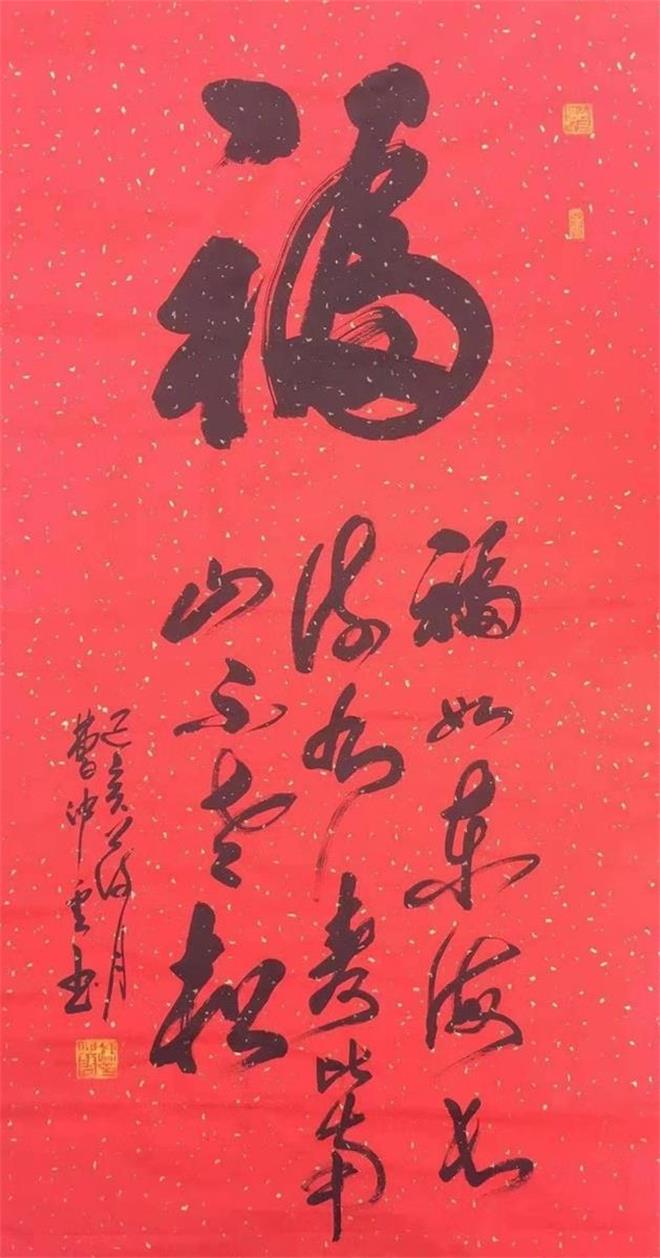 福
福如东海长
流水寿比南
山不老松
己亥
曹冲云书